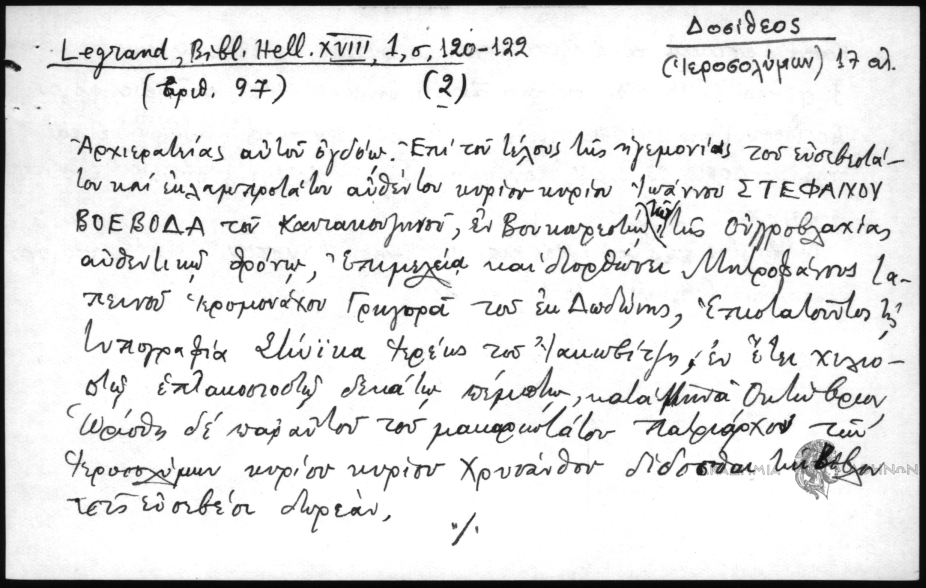 Δοσίθεος
Legrand, Bibl. Hell. XVIII, 1, σ. 120-122
(Ἱεροσολύμων) 17 αἰ.
(ἀριθ. 97) (2)
Ἀρχιερατείας αὐτοῦ ὀγδόῳ. Ἐπὶ τοῦ τέλους τῆς ἡγεμονίας τοῦ εὐσεβεστά-
του καὶ ἐκλαμπροτάτου αὐθέντου κυρίου κυρίου Ἰωάννου ΣΤΕΦΑΝΟΥ
ΒΟΕΒΟΔΑ τοῦ Καντακουζηνοῦ, ἐν Βουκαρεστίῳ τῷ τῆς Οὐγγροβλαχίας
αὐθεντικῷ θρόνῳ, Ἐπιμελείᾳ καὶ διορθώσει Μητροφάνους τα-
πεινοῦ ἱερομονάχου Γρηγορᾶ τοῦ ἐκ Δωδώνης, Ἐπιστατοῦντος τῇ
τυπογραφίᾳ Στόϊκα Ἱερέως τοῦ Ἰακωβίτζη, ἐν ἔτει χιλιο-
στῷ ἑπτακοσιοστῷ δεκάτῳ πέμπτῳ, κατὰ Μῆνα Ὀκτώβριον
Ὡρίσθη δὲ παρ' αὐτοῦ τοῦ μακαριωτάτου Πατριάρχου τῶν
Ἱεροσολύμων κυρίου κυρίου Χρυσάνθου δίδοσθαι τὴν Βίβλον
τοῖς εὐσεβέσι δωρεάν.
./.